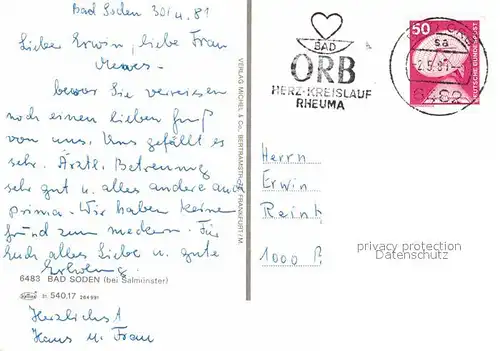 Bad Soden 30. 4. 81
Lieber Erwin, liebe Frau
Mewes -
bevor Sie verreisen
noch einen lieben Gruß
von uns. Uns gefällt es
sehr. Ärztl. Betreuung
sehr gut u. alles andere auch
prima. Wir haben keinen
Grund zum meckern. Für
Euch alles Liebe u. gute
Erholung.
6483 BAD SODEN (bei Salmünster)
b. 540.17
Herzlichst
Hans u. Frau
VERLAG MICHEL & Co., BERTRAMSTR. FRANKFURT/M.
BAD
ORB
HERZ-KREISLAUF
RHEUMA
50
DEUTSCHE BUNDESPOST
sa
-2.5.81
6482
Herrn
Erwin
1000 B.
privacy protection
Datenschutz